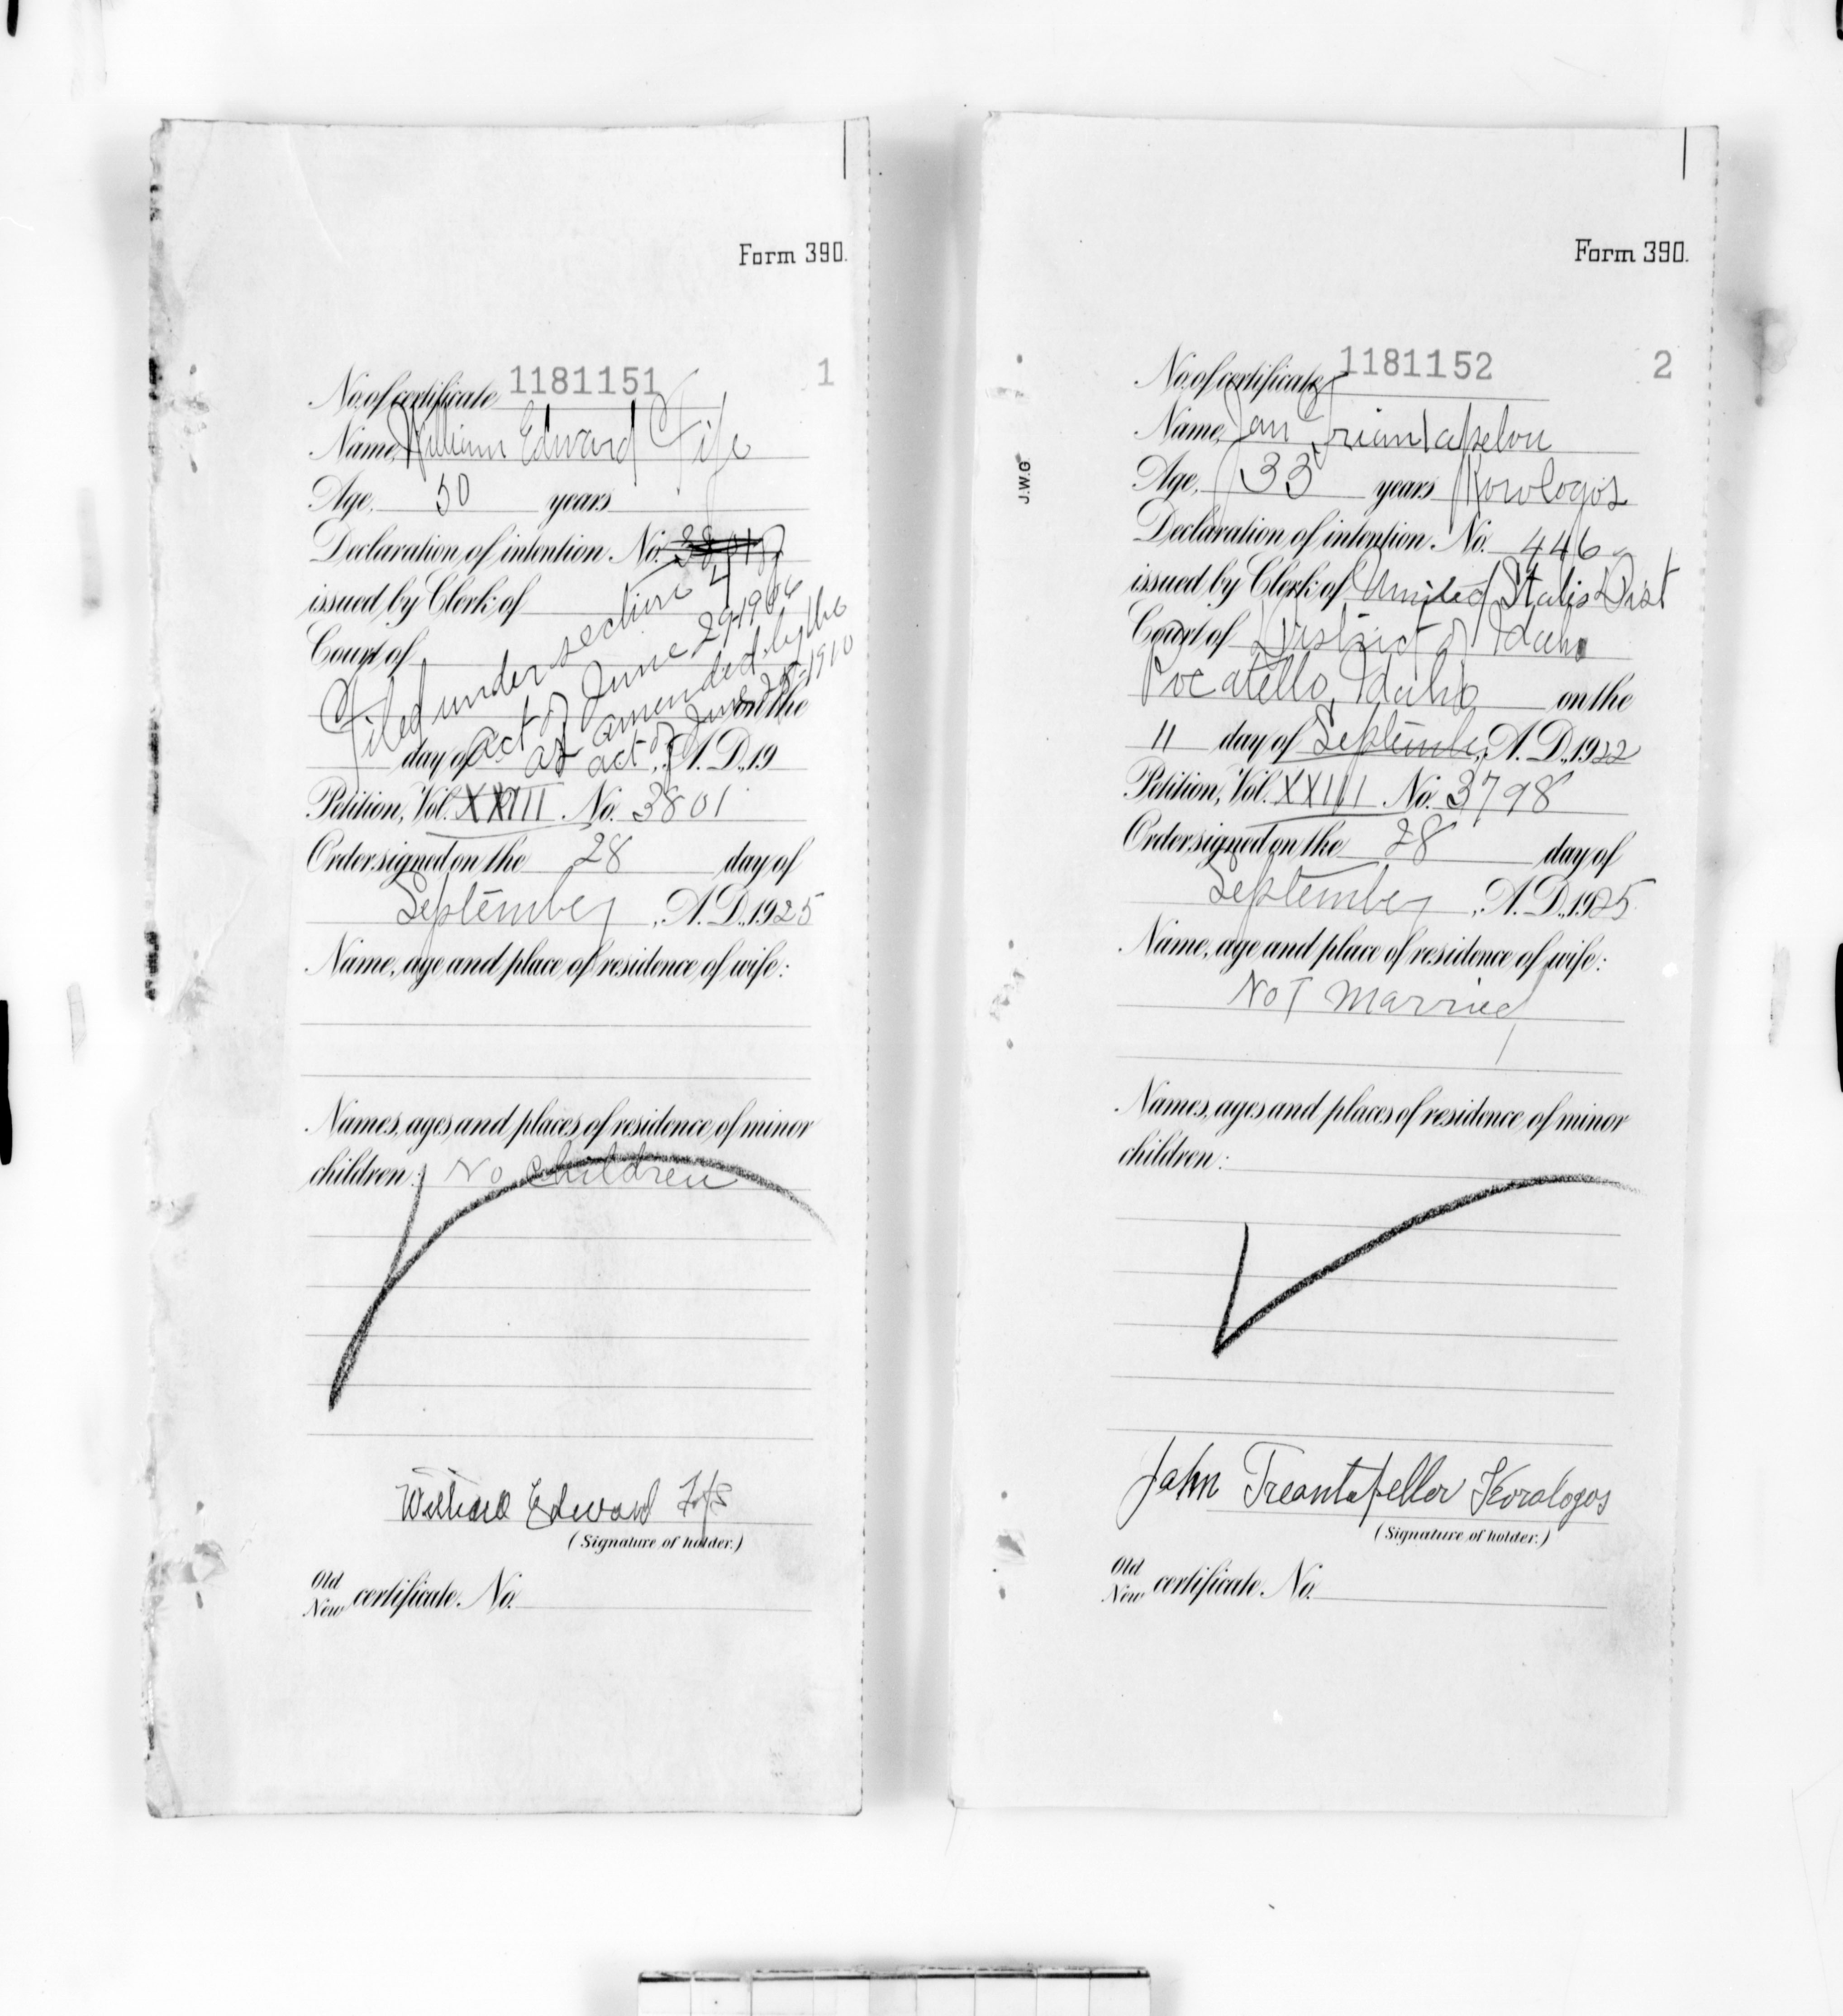 Form 390.
1181151 1
No. of certificate
Name, William Edward Fife
Age, 50 years
Declaration of intention No.
issued by Clerk of
Court of
Filed under section 4
act of June 29-1906
as amended by the
act of June 25-1910
on the
day of , A. D., 19
Petition, Vol. XXIII No. 3801
Order signed on the 28 day of
September , A. D., 1925
Name, age and place of residence of wife:
Names, ages and places of residence of minor
children: No children
William Edward Fife
(Signature of holder.)
Old
New certificate No.
Form 390.
J.W.G.
1181152 2
No. of certificate
Name, Jan Triantapelou
Age, 33 years Korologos
Declaration of intention No. 446
issued by Clerk of United States Dist
Court of District of Idaho
Pocatello, Idaho on the
11 day of September, A. D., 1922
Petition, Vol. XXIII No. 3798
Order signed on the 28 day of
September , A. D., 1925
Name, age and place of residence of wife:
Not Married
Names, ages and places of residence of minor
children:
John Treantafellor Korologos
(Signature of holder.)
Old
New certificate No.